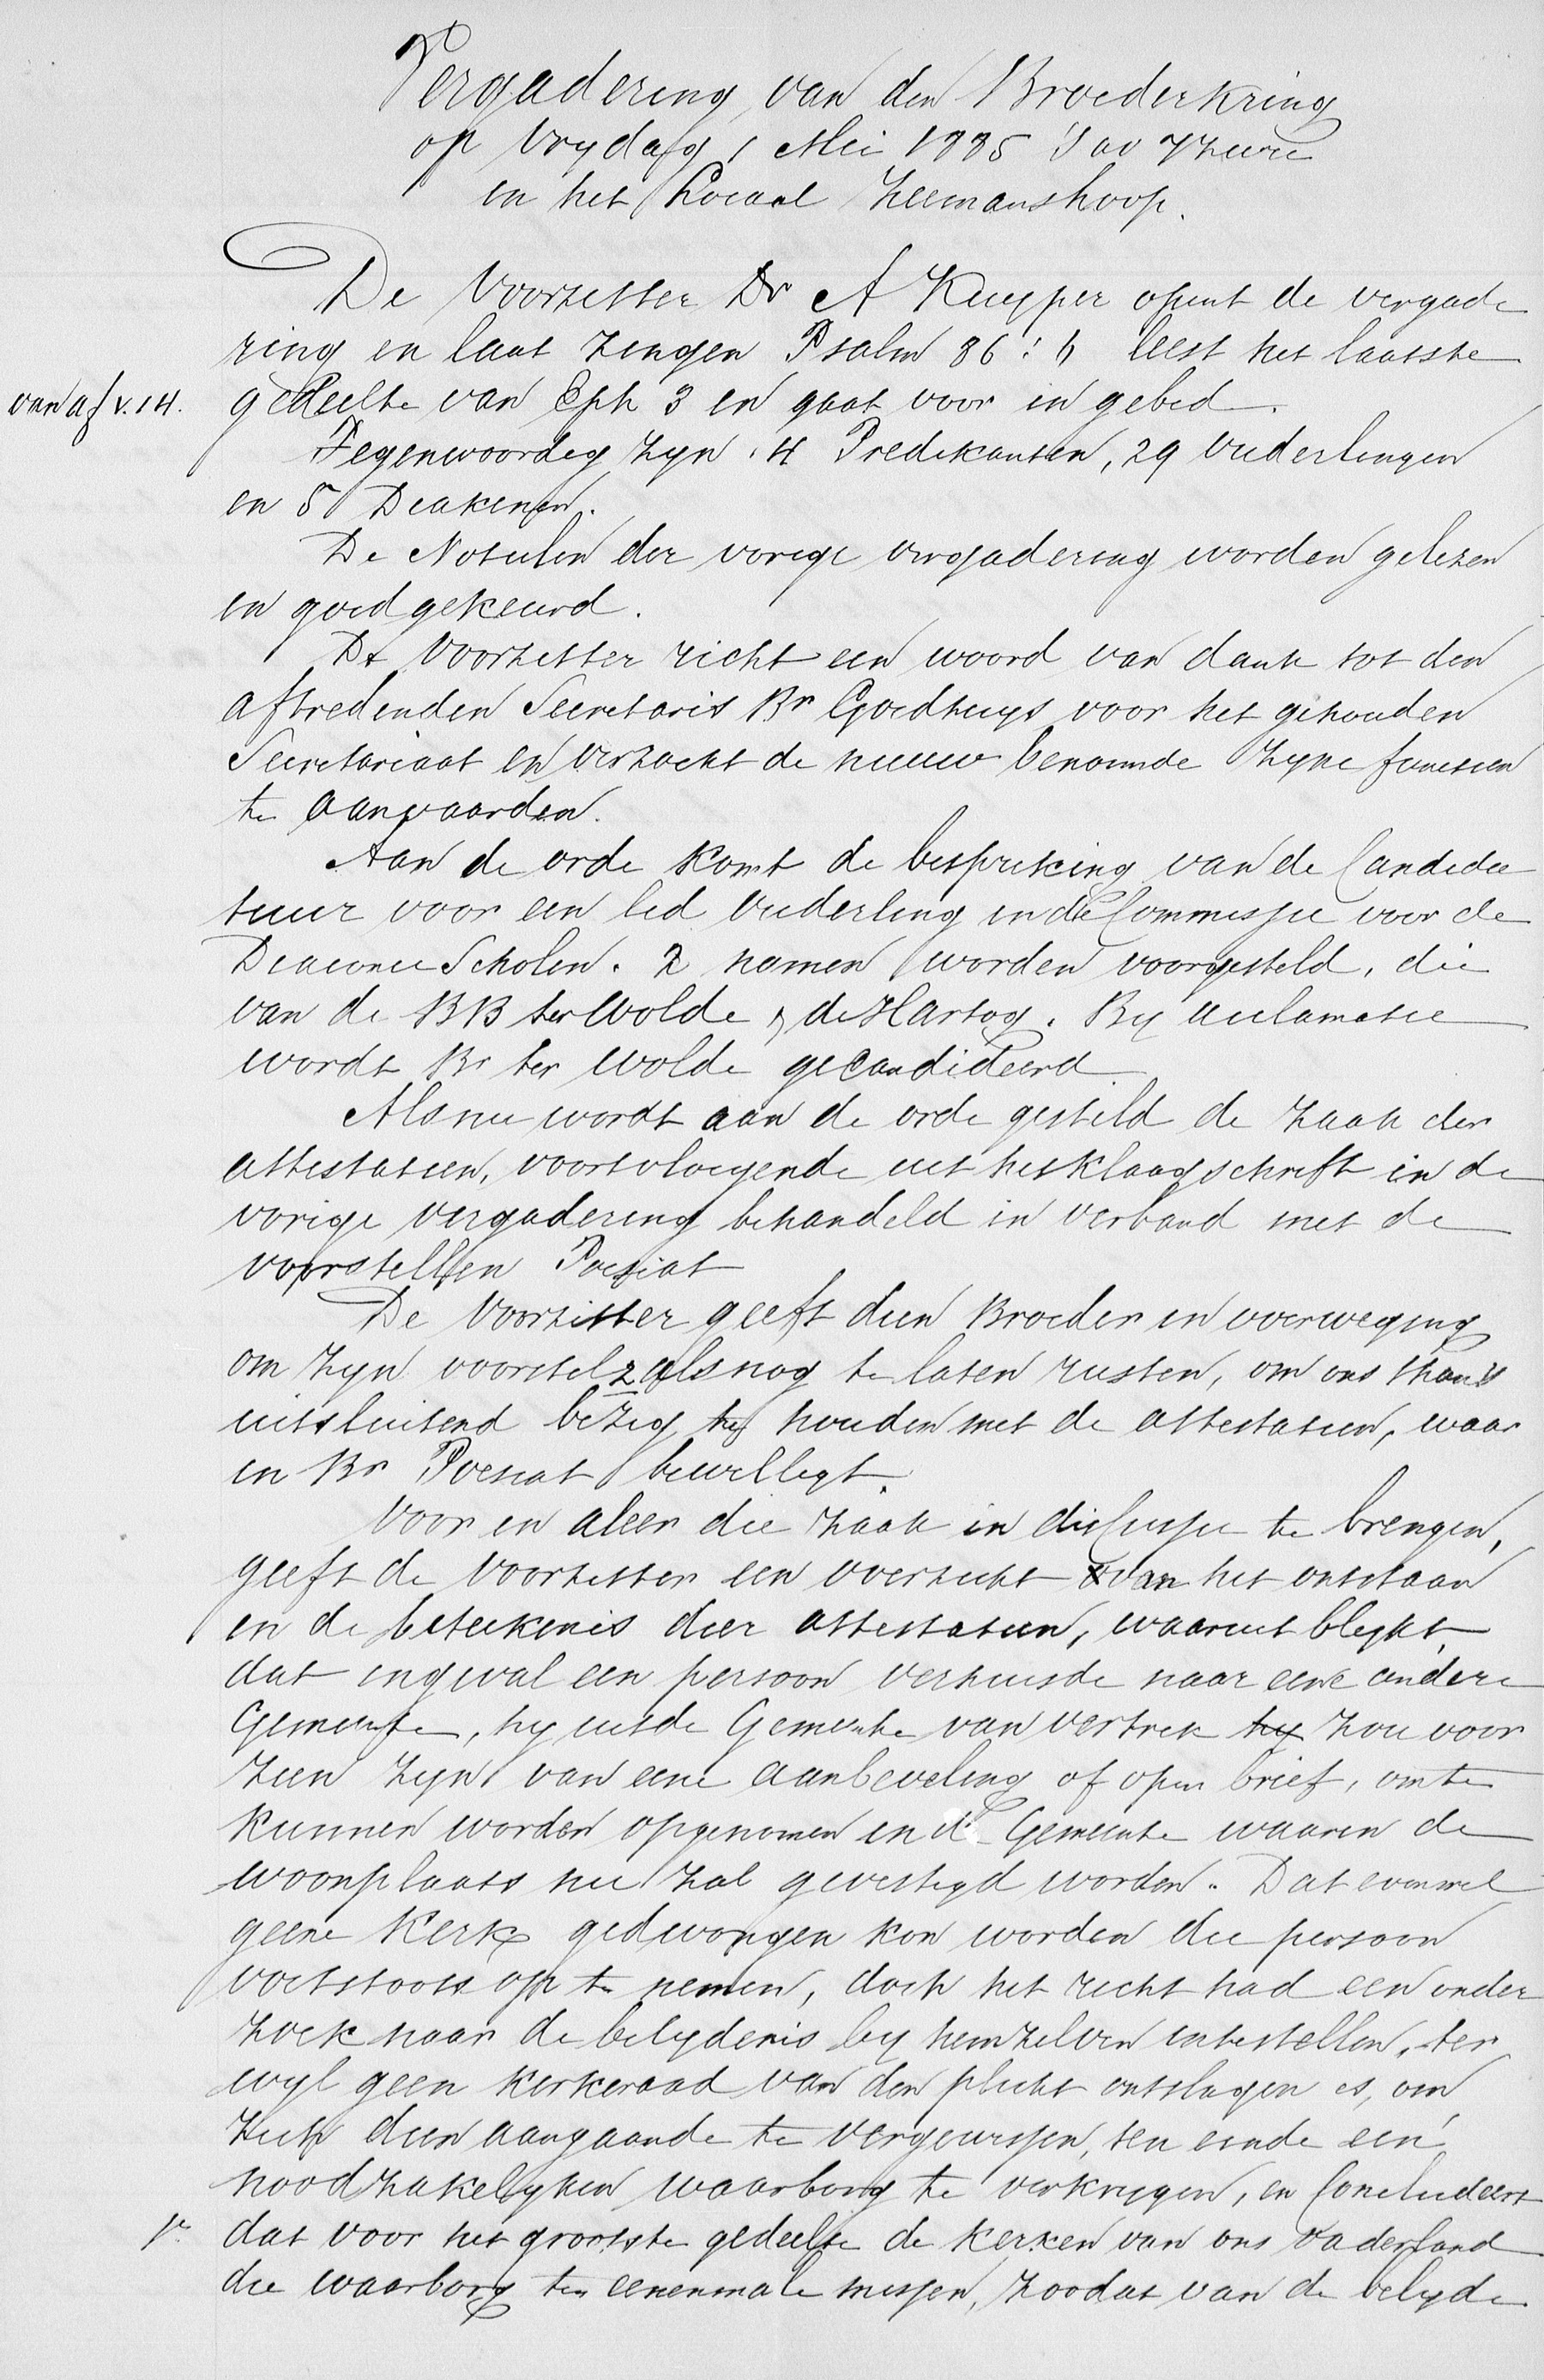 Vergadering van den Broederkring
op Vrydag 1 Mei 1885 's av 7 ure
in het Locaal Zeemanshoop.
De Voorzitter Dr A Kuyper opent de vergade
ring en laat zingen Psalm 86 : 6 leest het laatste
van af v. 14. gedeelte van Eph 3 en gaat voor in gebed.
Tegenwoordig zyn . 4 Predikanten, 29 Ouderlingen
en 5 Diakenen.
De Notulen der vorige vergadering worden gelezen
en goedgekeurd.
De Voorzitter richt een woord van dank tot den
aftredenden Secretaris Br Goedhuys voor het gehouden
Secretariaat en verzoekt de nieuw benoemde zyne functien
te aanvaarden.
Aan de orde komt de bespreking van de Candida
tuur voor een lid Ouderling in de Commissie voor de
Diaconie Scholen. 2 namen worden voorgesteld, die
van de BB ter Wolde & de Hartog. By acclamatie
wordt Br ter Wolde gecandideerd
Als nu wordt aan de orde gesteld de zaak der
attestatien, voortvloeyende uit het klaagschrift in de
vorige vergadering behandeld in verband met de
voorstellen Poesiat
De Voorzitter geeft dien Broeder in overweging
om zyn voorstel 2 alsnog te laten rusten, om ons thans
uitsluitend bezig te houden met de attestatien, waar
in Br Poesiat bewilligt.
Voor en aleer die zaak in discussie te brengen,
geeft de Voorzitter een overzicht van het ontstaan
en de beteekenis dier attestatien, waaruit blykt,
dat ingeval een persoon verhuisde naar eene andere
Gemeente, hy uit de Gemeente van vertrek hy zou voor
zien zyn van eene aanbeveling of open brief, om te
kunnen worden opgenomen in de Gemeente waarin de
woonplaats nu zal gevestigd worden. Dat evenwel
geene Kerk gedwongen kon worden die persoon
voetstoots op te nemen, doch het recht had een onder
zoek naar de belydenis by hemzelven intestellen, ter
wyl geen kerkeraad van den plicht ontslagen is, om
zich dien aangaande te vergewissen, ten einde een
noodzakelyken waarborg te verkrygen, en Concludeert
dat voor het grootste gedeelte de kerken van ons vaderland
die waarborg ten eenenmale missen, zoodat van de belyde